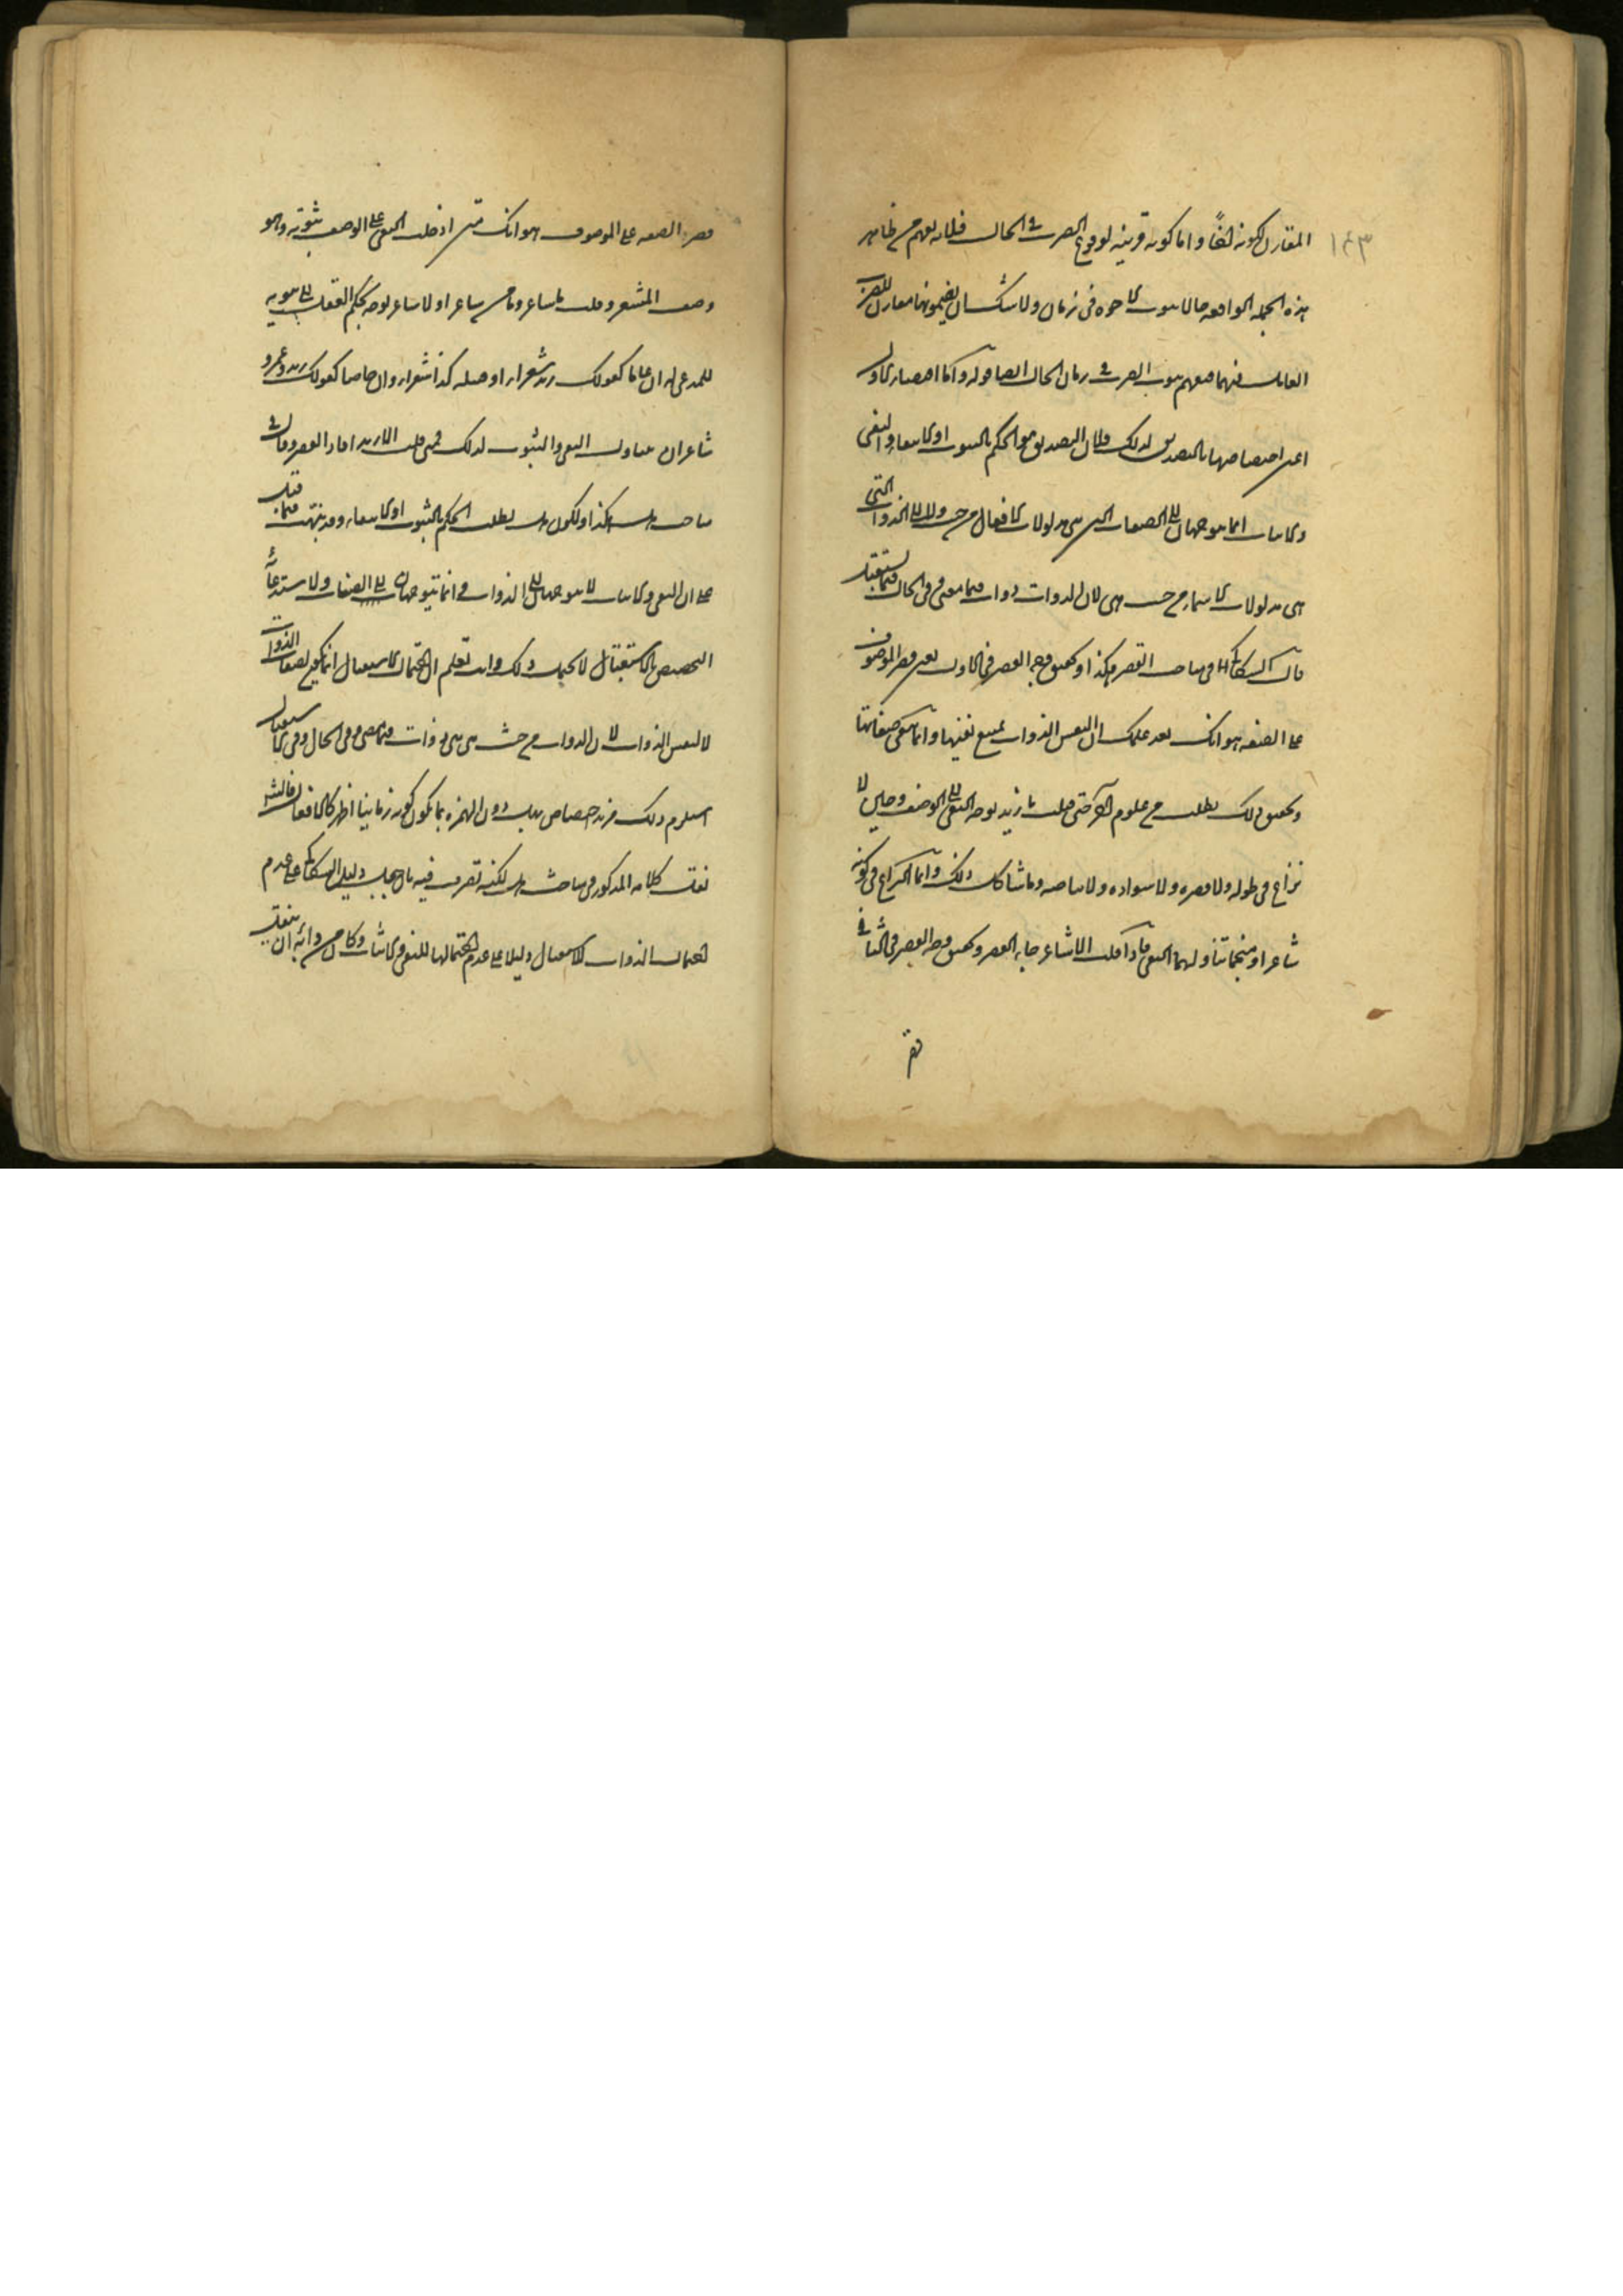 ١٤٣
المقارن لكونه اخا واما كونه قرينة لوقوع الضرب فى الحال فلانه يفهم من ظاهر
هذه الجملة الواقعة حالا ثبوت الاخوة فى زمان ولا شك ان مضمونها مقارن للضرب
العامل فيها فيفهم ثبوت الضرب فى زمان الحال ايضا قوله واما اقتضاء الاول
اعنى اختصاصها بالتصديق لذلك فلان التصديق هو الحكم بالثبوت او الانتفاء والنفى
والاثبات انما يتوجهان الى الصفات التى هى مدلولات الافعال من حيث ولا الى الذوات التى
هى مدلولات الاسماء من حيث هى لان الذوات ذوات فيما مضى وفى الحال وفيما يستقبل
قال السكاكى فى مباحث القصر هكذا وتحقيق وجه القصر فى الاول يعنى قصر الموصوف
على الصفة هو انك بعد علمك ان انفس الذوات يمتنع نفيها وانما ينفى صفاتها
وتحقيق ذلك يطلب من علوم اخر متى قلت ما زيد توجه النفى الى الوصف وحين لا
نزاع فى طوله ولا قصره ولا سواده ولا بياضه وما شاكل ذلك وانما النزاع فى كونه
شاعرا او منجما تناولهما النفى فاذا قلت الا شاعر جاء القصر وتحقيق وجه القصر فى الثانى
قصر
قصر الصفة على الموصوف هو انك متى ادخلت النفى على الوصف بثبوته وهو
وصف الشعر وقلت ما شاعر وما من شاعر او لا شاعر توجه بحكم العقل الى ثبوته
للمدعى له ان عاما كقولك زيد شعراء او قبيلة كذا شعراء وان خاصا كقولك زيد وعمرو
شاعران فتناول النفى والثبوت لذلك فمتى قلت الا زيد افاد القصر وقال فى
مباحث هل هكذا ولكون هل لطلب الحكم بالثبوت او الانتفاء وقد نبهت فيما قبل
على ان النفى والاثبات لا يتوجهان الى الذوات وانما يتوجهان الى الصفات ولاستدعائه
التخصيص بالاستقبال لا يحتمل ذلك وانت تعلم ان احتمال الاستقبال انما يكون لصفات الذوات
لا لنفس الذوات لان الذوات من حيث هى هى ذوات فيما مضى وفى الحال وفى الاستقبال
استلزم ذلك مزيد اختصاص لهل دون الهمزة بما يكون كونه زمانيا اظهر كالافعال فالشارح
نقل كلامه المذكور فى مباحث هل لكنه تصرف فيه بان جعل دليل السكاكى على عدم
احتمال الذوات للاستقبال دليلا على عدم احتمالها للنفى والاثبات وكان من دأبه ان ينقل